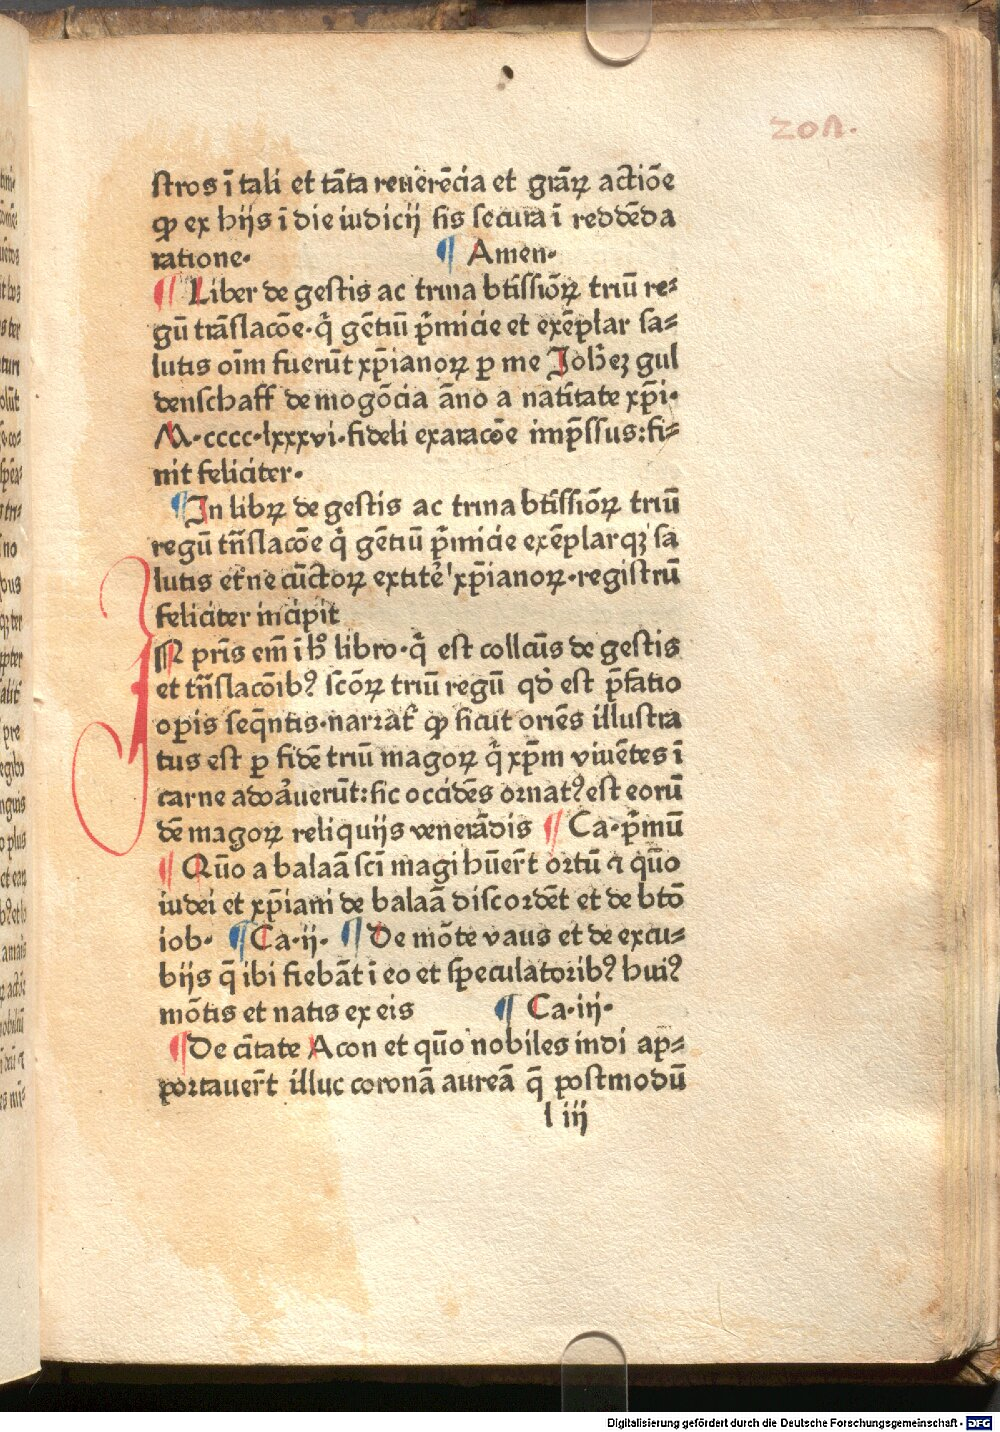 zoʌ.
stros ī tali et tāta reuerēcia et grāꝝ actiōe
ꝙ ex hijs ī die iudicij sis secura ī reddēda
ratione. ¶ Amen.
¶ Liber de gestis ac trina btissiōꝝ triū re⸗
gū trāslacōe. q̄ gētiū p̄micie et exēplar sa⸗
lutis oīm fuerūt xp̄ianoꝝ ꝑ me Joh̄eꝫ gul
denschaff de mogōcia āno a natītate xp̄i.
M.cccc.lxxxvi. fideli exaracōe imp̄ssus: fi⸗
nit feliciter.
¶ In libꝝ de gestis ac trina btissiōꝝ triū
regū trn̄slacōe q̄ gētiū p̄micie exēplarqꝫ sa
lutis et̄ne cūctoꝝ extitē xp̄ianoꝝ. registrū
feliciter incipit
IN pr̄is em̄ ī h̄° libro. q̄ est collc̄us de gestis
et trn̄slacōibꝰ scōꝝ triū regū qd̓ est p̄fatio
oꝑis seq̄ntis. narrat̄ ꝙ sicut oriēs illustra
tus est ꝑ fidē triū magoꝝ q̄ xp̄m viuētes ī
carne adoāuerūt: sic occidēs ornatꝰ est eorū
dē magoꝝ reliquijs venerādis ¶ Ca. p̄mū
¶ Qūo a balaā sc̄i magi hūer̄t ortū ⁊ qūo
iudei et xp̄iani de balaā discordēt et de btō
iob. ¶ Ca. ij. ¶ De mōte vaus et de excu⸗
bijs q̄ ibi fiebāt ī eo et speculatoribꝰ huiꝰ
mōtis et natis ex eis ¶ Ca. iij.
¶ De citate Acon et qūo nobiles indi ap⸗
portauer̄t illuc coronā aureā q̄ postmodū
l iij
Digitalisierung gefördert durch die Deutsche Forschungsgemeinschaft - DFG